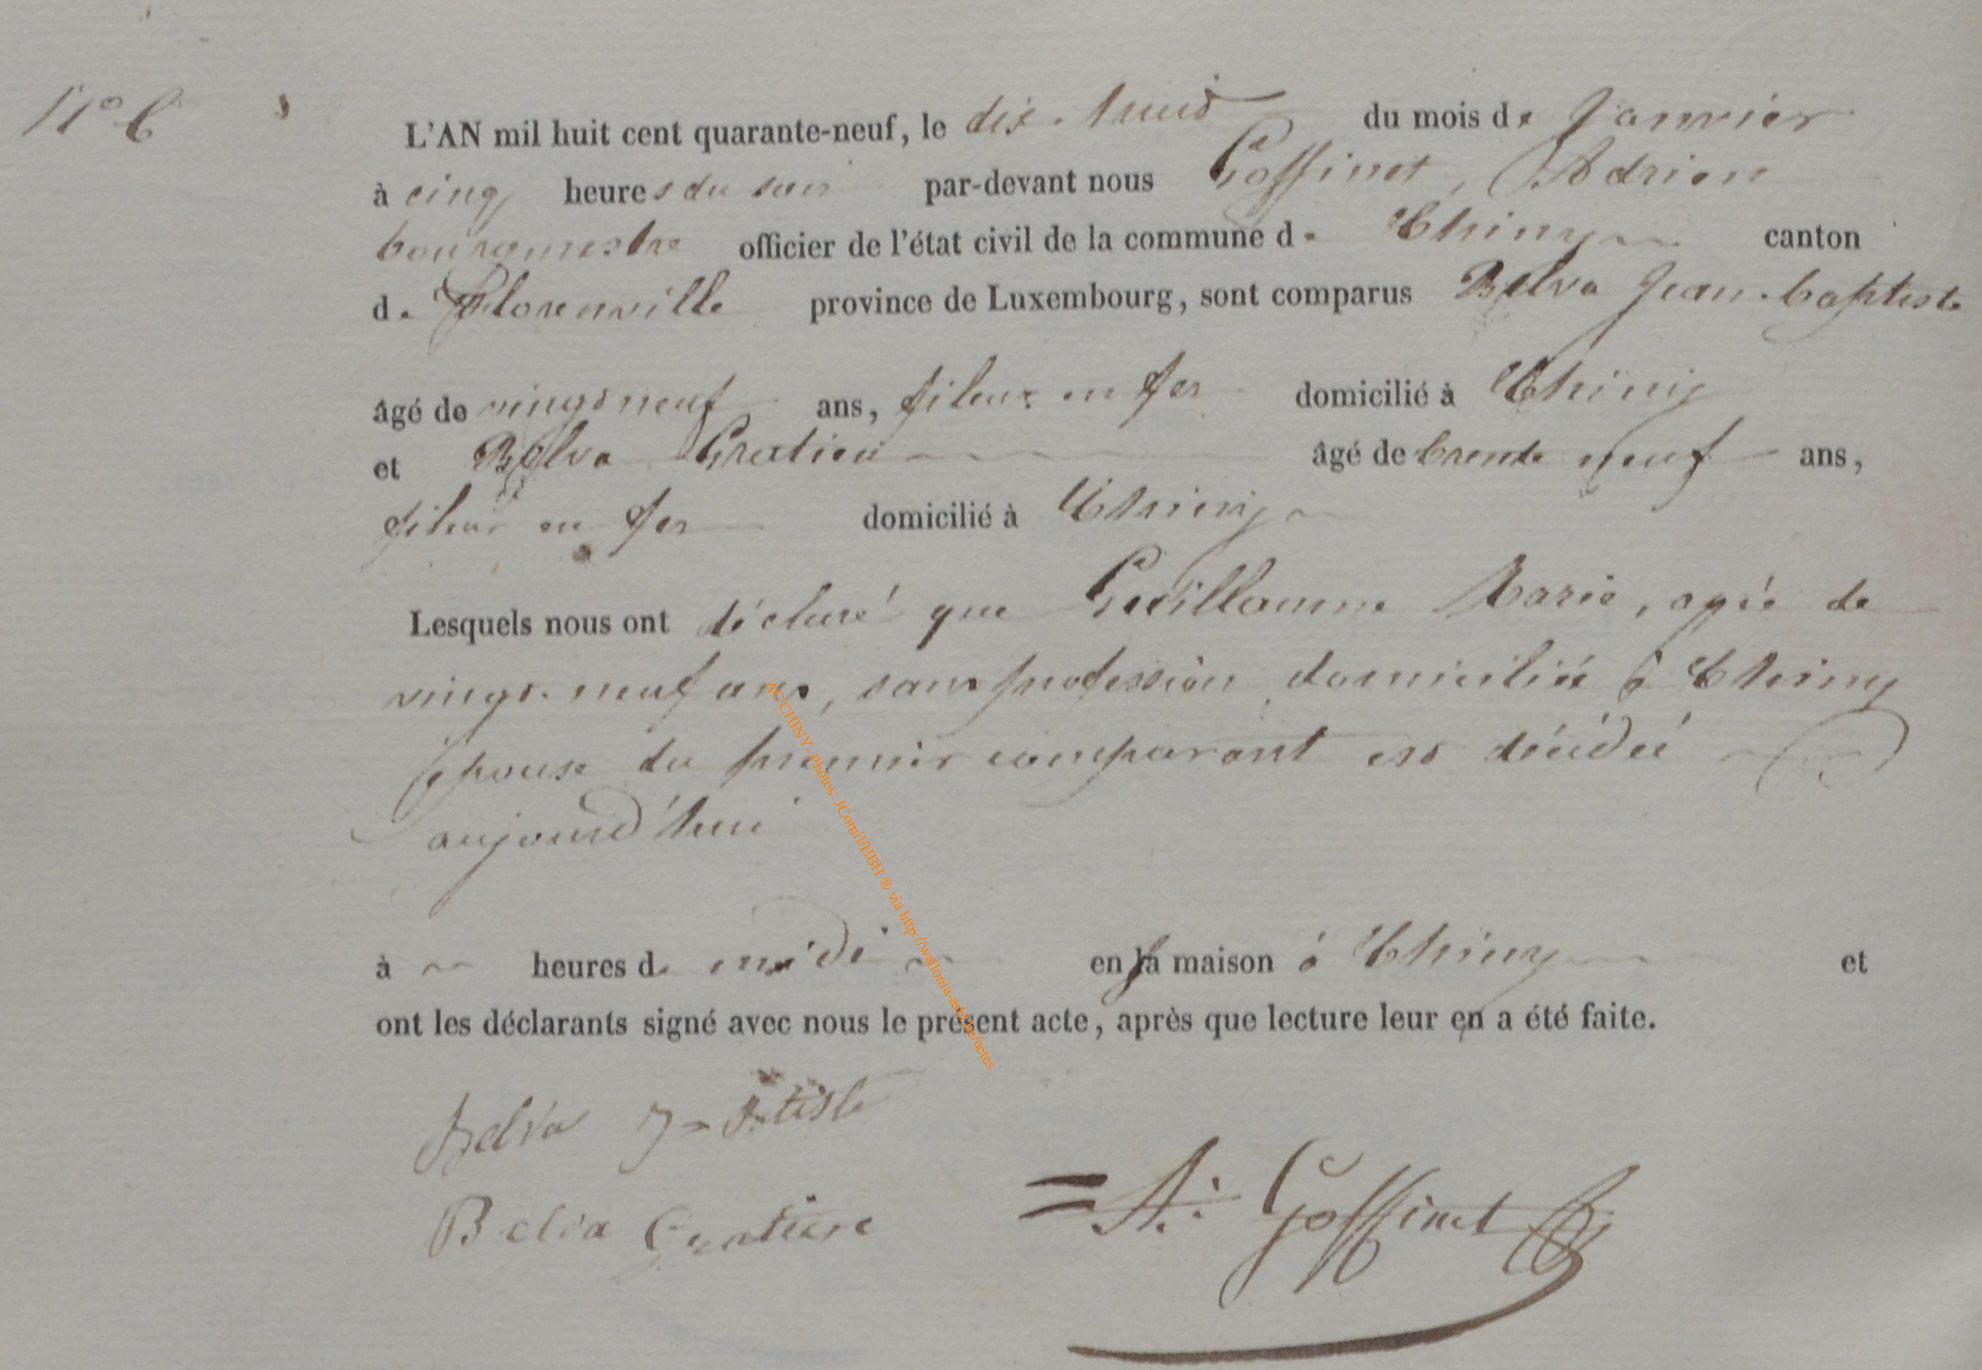 N° 6
L'AN mil huit cent quarante-neuf, le dix-huit du mois de Janvier
à cinq heures du soir par-devant nous Goffinet, Adrien
bourgmestre officier de l'état civil de la commune de Chiny canton
de Florenville province de Luxembourg, sont comparus Belva Jean-baptiste
âgé de vingt neuf ans, fileur en fer domicilié à Chiny
et Belva Gratien âgé de trente neuf ans,
fileur en fer domicilié à Chiny
Lesquels nous ont déclaré que Guillaume Marie, agée de
vingt-neuf ans, sans profession, domiciliée à Chiny
épouse du premier comparant est décédée
aujourd'hui
à heures de midi en sa maison à Chiny et
ont les déclarants signé avec nous le présent acte, après que lecture leur en a été faite.
Belva J-Btiste
Belva Gratiene
A: Goffinet
AC CHINY - Photos JCornil/HBH ® via http://wallonia-asbl.be/actes